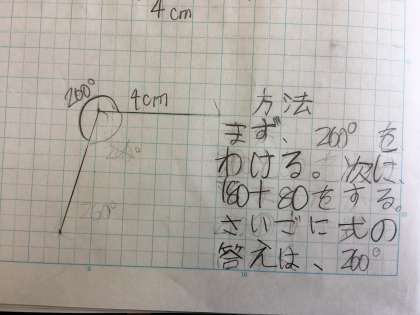 4cm
260°
4cm
方法
まず、260°を
わける。次に、
180+80をする。
さいごに式の
答えは、260°